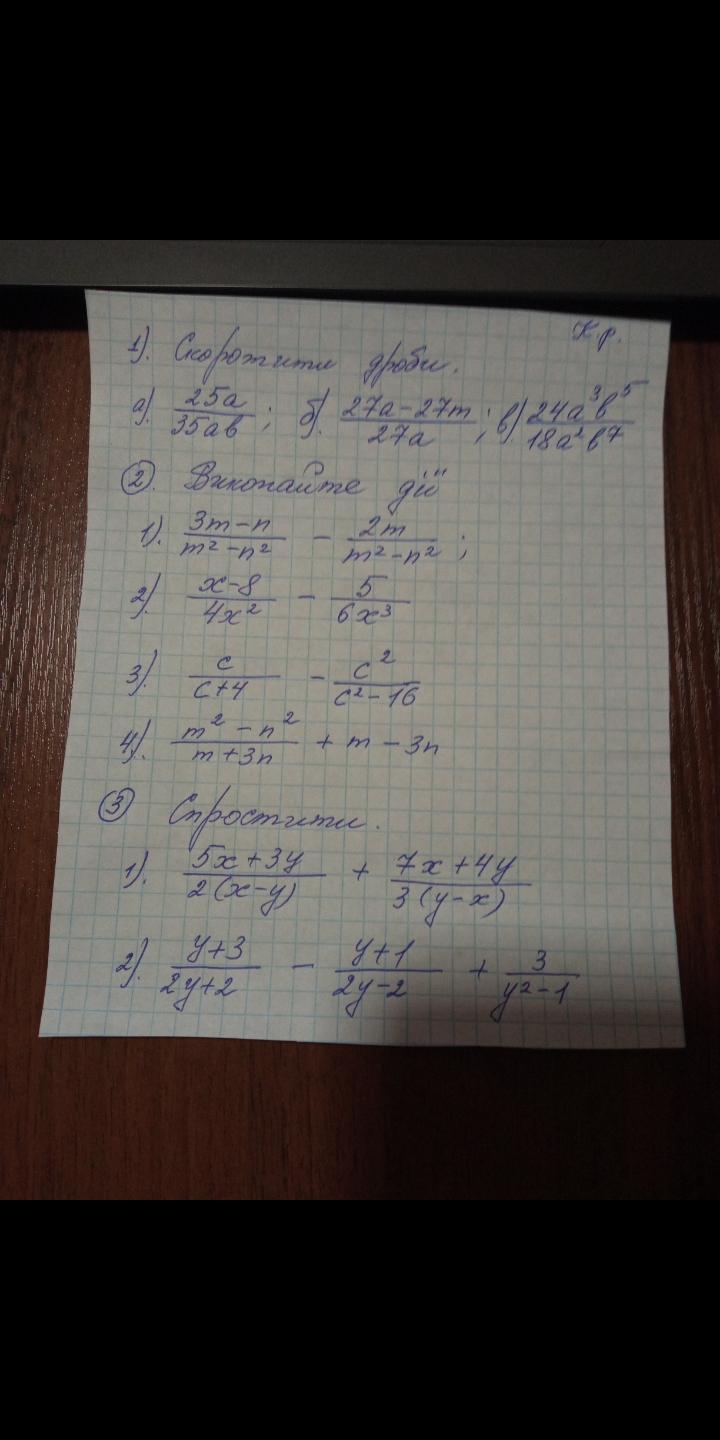 К.р.
1). Скоротити дроби.
а). 25a/35ab ; б). 27a-27m/27a ; в) 24a³b⁵/18a²b⁷
2. Виконайте дії
1). 3m-n/m²-n² - 2m/m²-n² ;
2). x-8/4x² - 5/6x³
3). c/c+4 - c²/c²-16
4). m²-n²/m+3n + m-3n
3 Спростити.
1). 5x+3y/2(x-y) + 7x+4y/3(y-x)
2). y+3/2y+2 - y+1/2y-2 + 3/y²-1